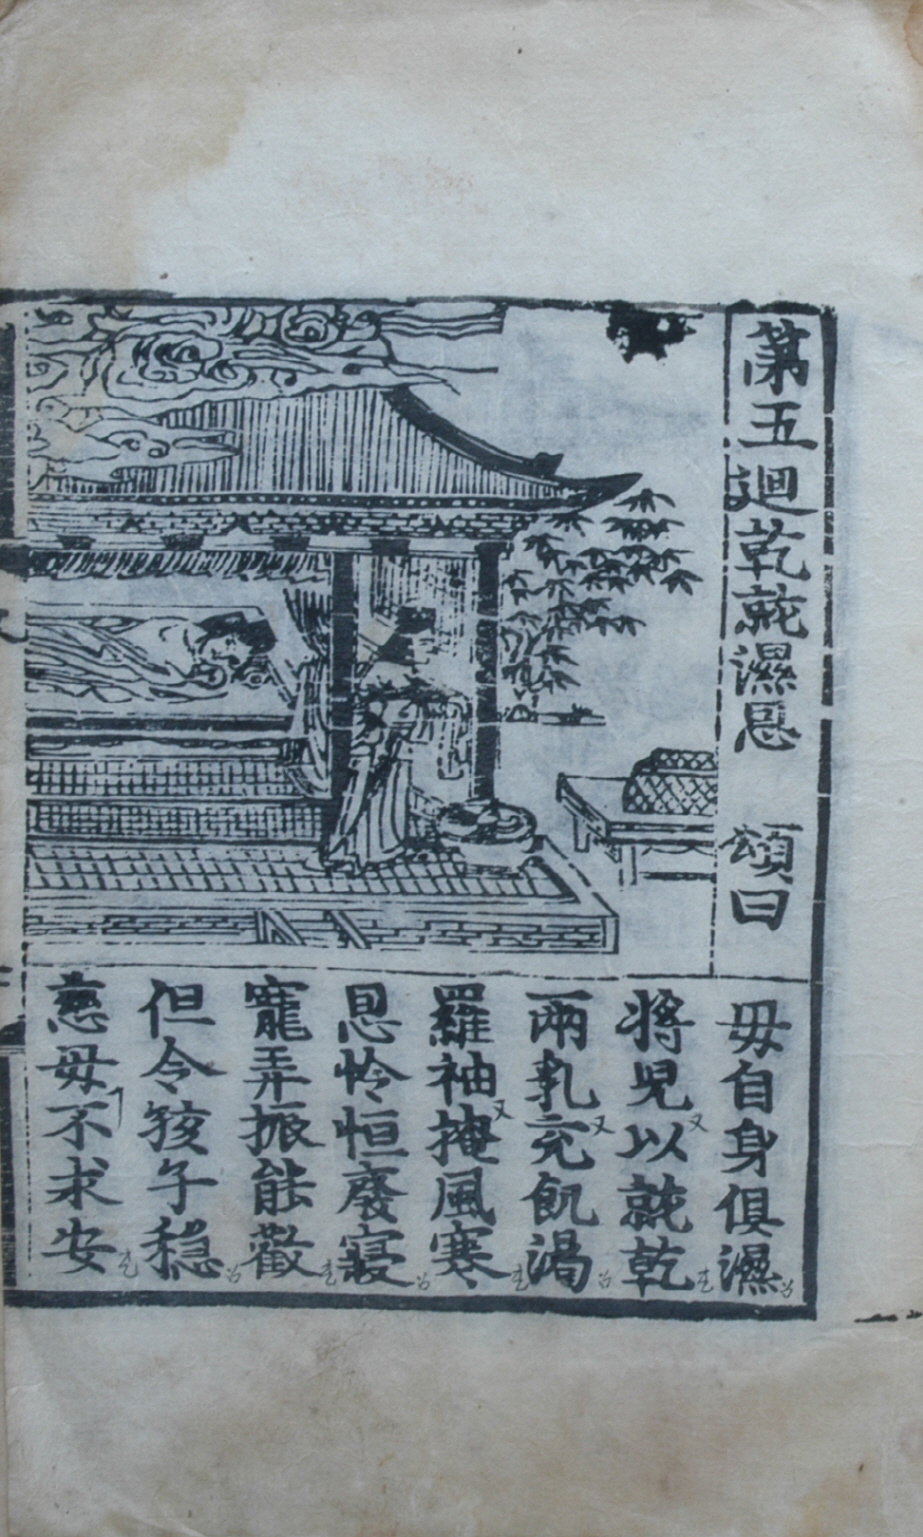 第五迴乾就濕恩 頌曰
母自身俱濕
將兒以就乾
兩乳充飢渴
羅袖掩風寒
恩怜恒廢寢
寵弄振能歡
但令孩子穩
慈母不求安